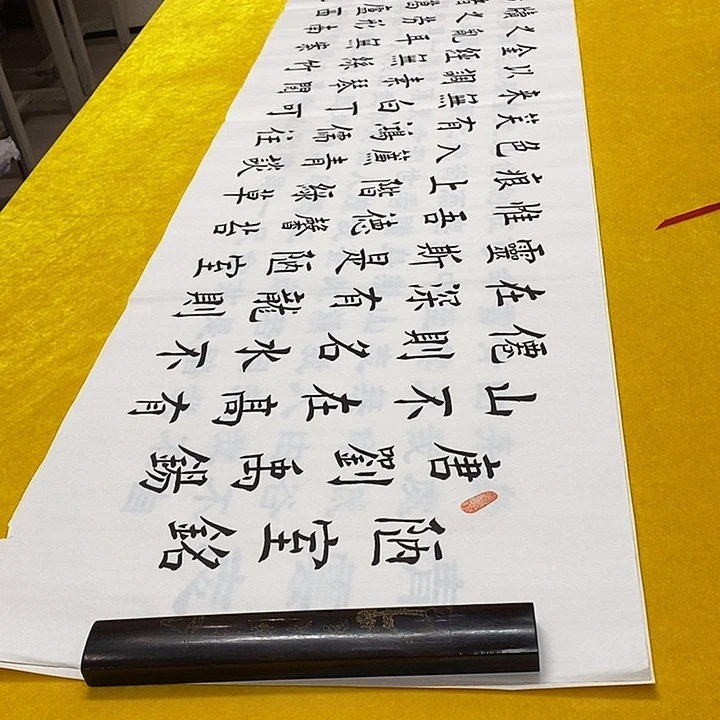 陋室銘
唐劉禹錫
山不在高有
僊則名水不
在深有龍則
靈斯是陋室
惟吾德馨苔
痕上階綠草
色入簾青談
笑有鴻儒往
来無白丁可
以調素琴閱
金經無絲竹
之亂耳無案
牘之勞形南
葛廬西